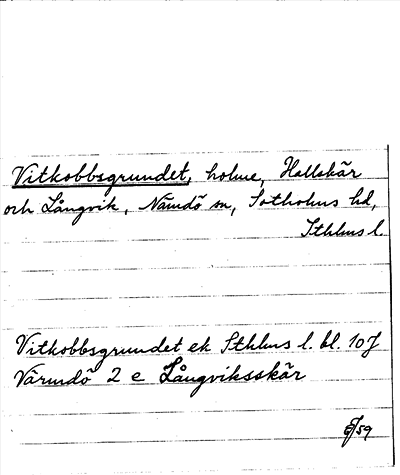 Vitkobbsgrundet, holme, Hallskär
och Långvik, Nämdö sn, Sotholms hd,
Sthlms l.
Vitkobbsgrundet ek Sthlms l. bl. 107
Värmdö 2 e Långviksskär